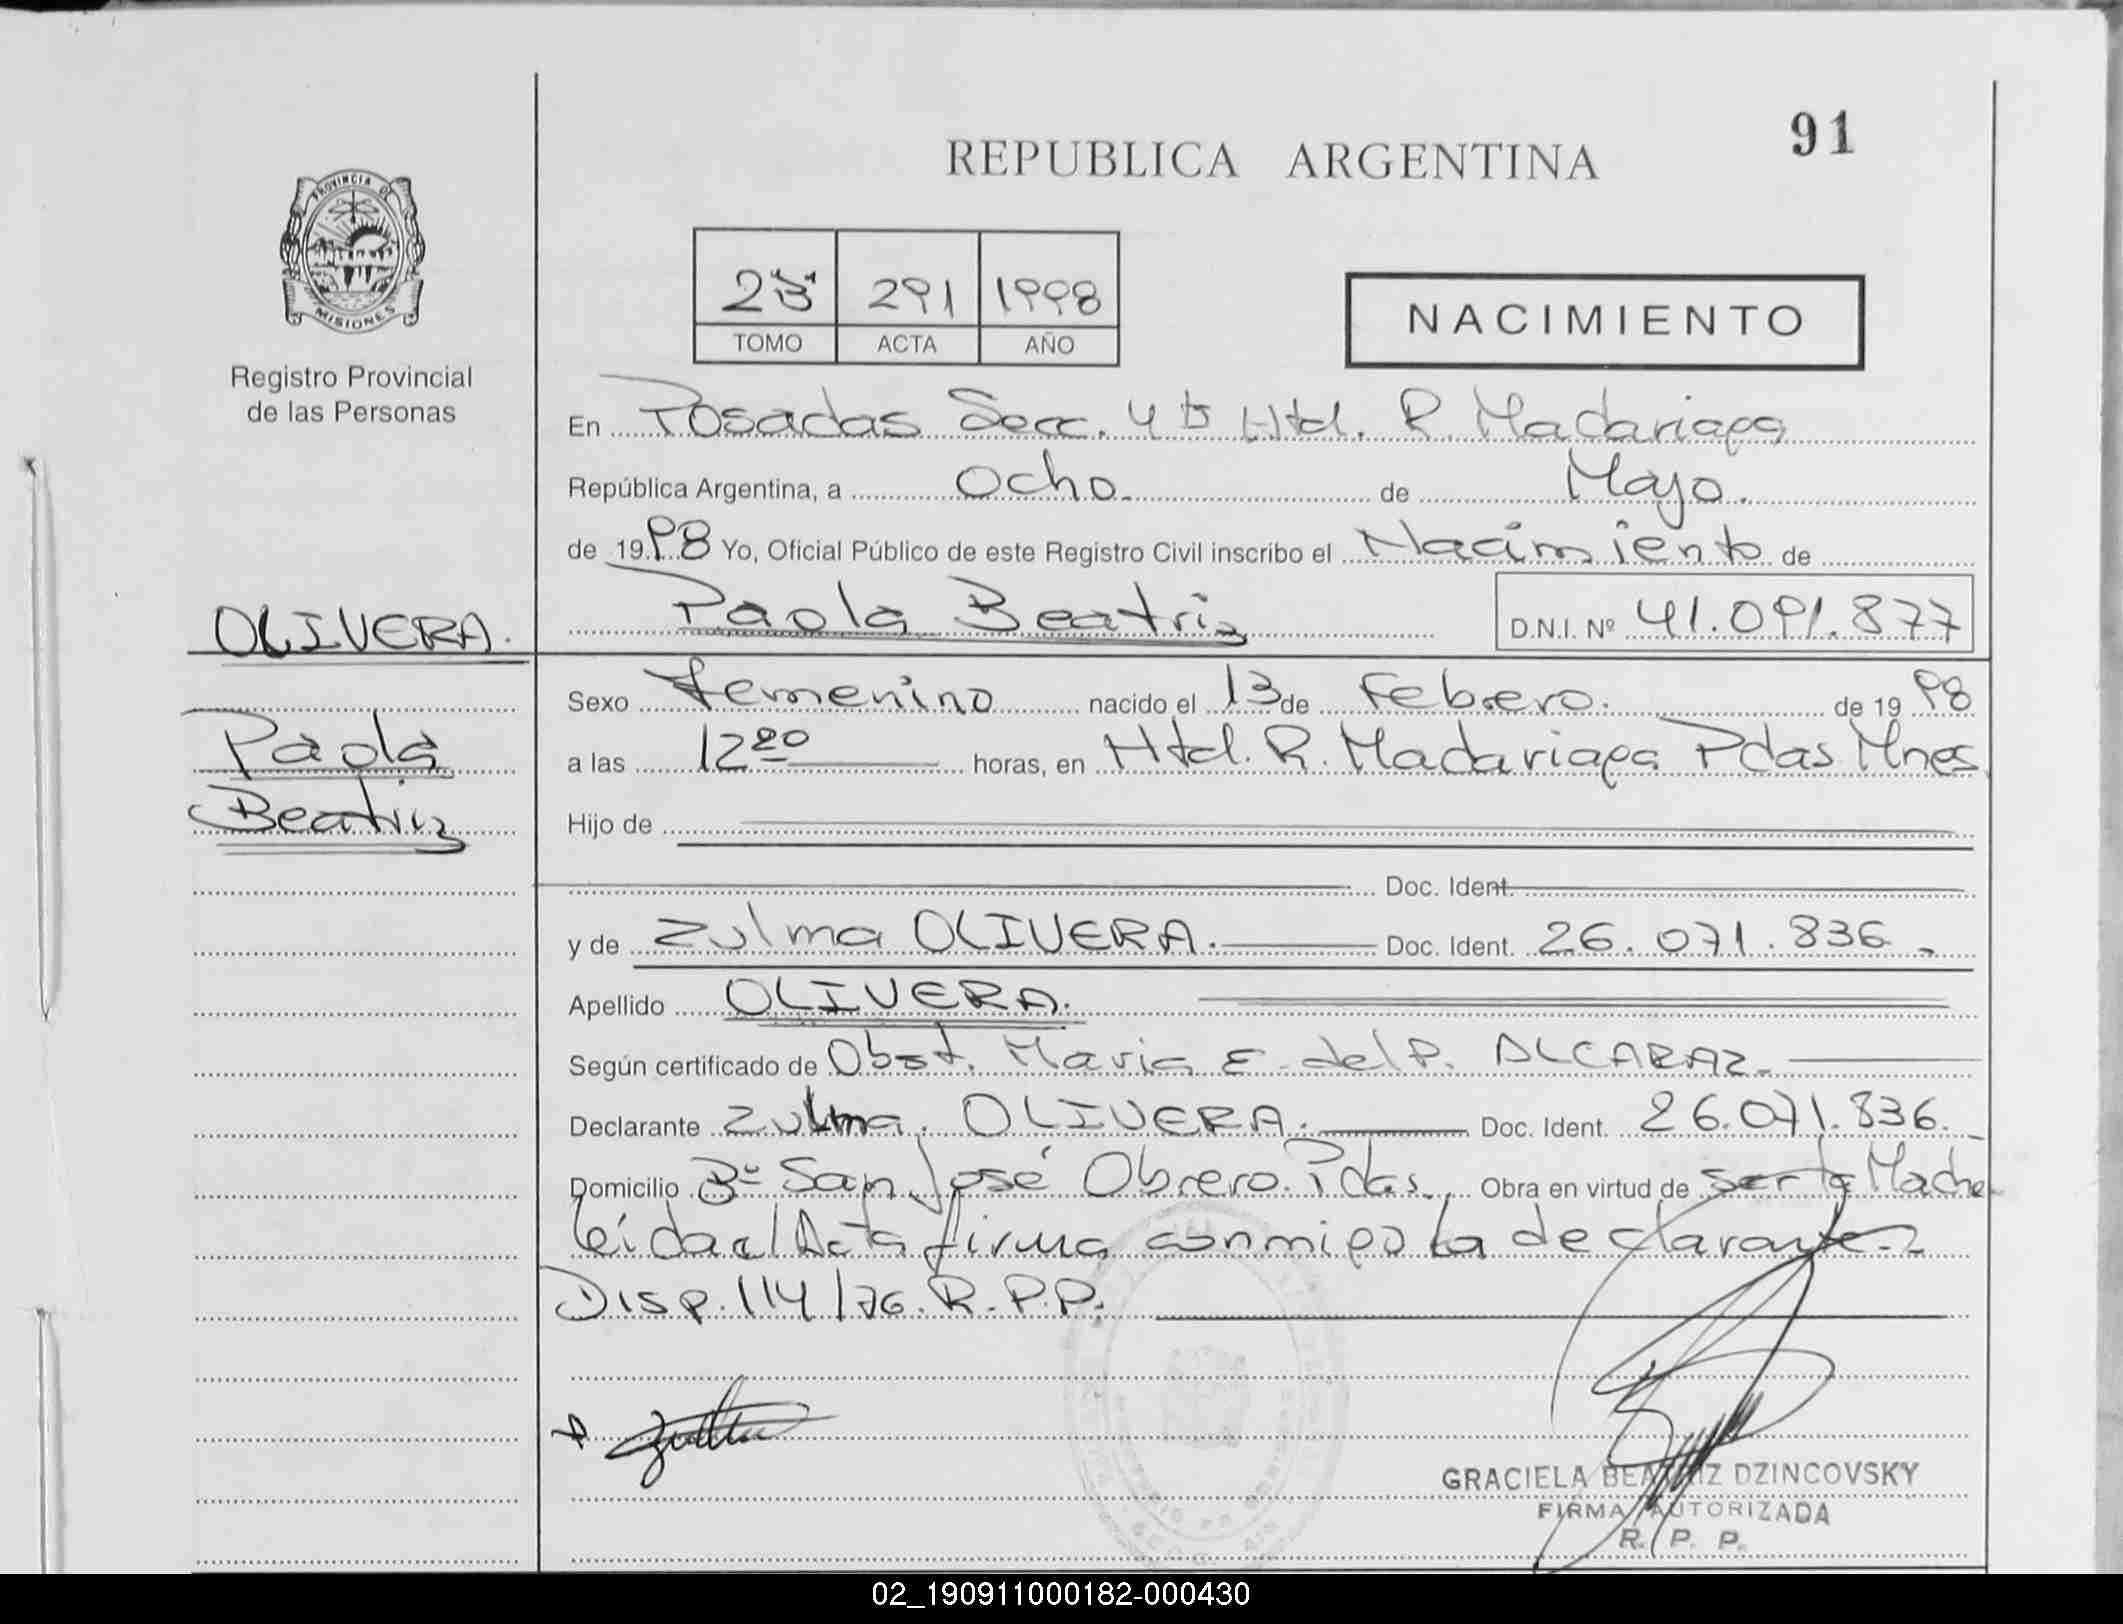 91
REPUBLICA ARGENTINA
PROVINCIA DE
MISIONES
Registro Provincial
de las Personas
291 1998
TOMO ACTA AÑO
NACIMIENTO
En Posadas Secc. 4ta Htal. R. Madariaga
República Argentina, a Ocho. de Mayo.
de 1998 Yo, Oficial Público de este Registro Civil inscribo el Nacimiento de
OLIVERA.
Paola Beatriz D.N.I. Nº 41.091.877
Sexo femenino nacido el 13 de Febrero. de 1998
Paola
a las 12 20 horas, en Htal. R. Madariaga Pdas Mnes
Beatriz
Hijo de
Doc. Ident.
y de Zulma OLIVERA. Doc. Ident. 26.071.836.
Apellido OLIVERA.
Según certificado de Obst. Maria E. del P. ALCARAZ
Declarante Zulma OLIVERA. Doc. Ident. 26.071.836.
Domicilio Bº San José Obrero. Pdas. Obra en virtud de ser la Madre
leída el Acta firma conmigo la declarante.
Disp. 114/76. R.P.P.
GRACIELA BEATRIZ DZINCOVSKY
FIRMA AUTORIZADA
R. P. P.
02_190911000182-000430